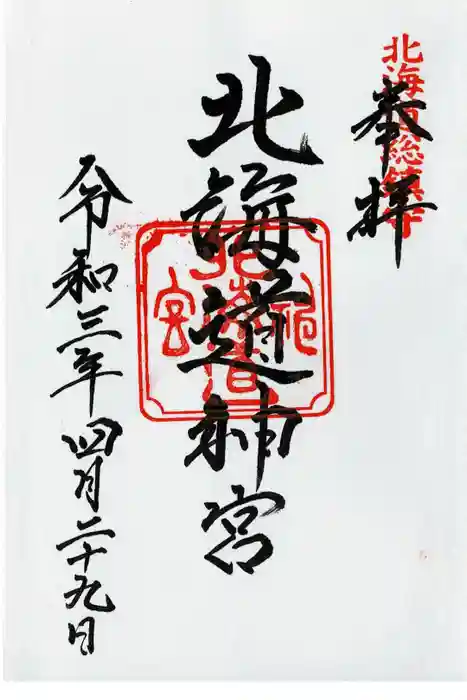 北海道総鎮守
奉拝
北海道神宮
令和三年四月二十九日